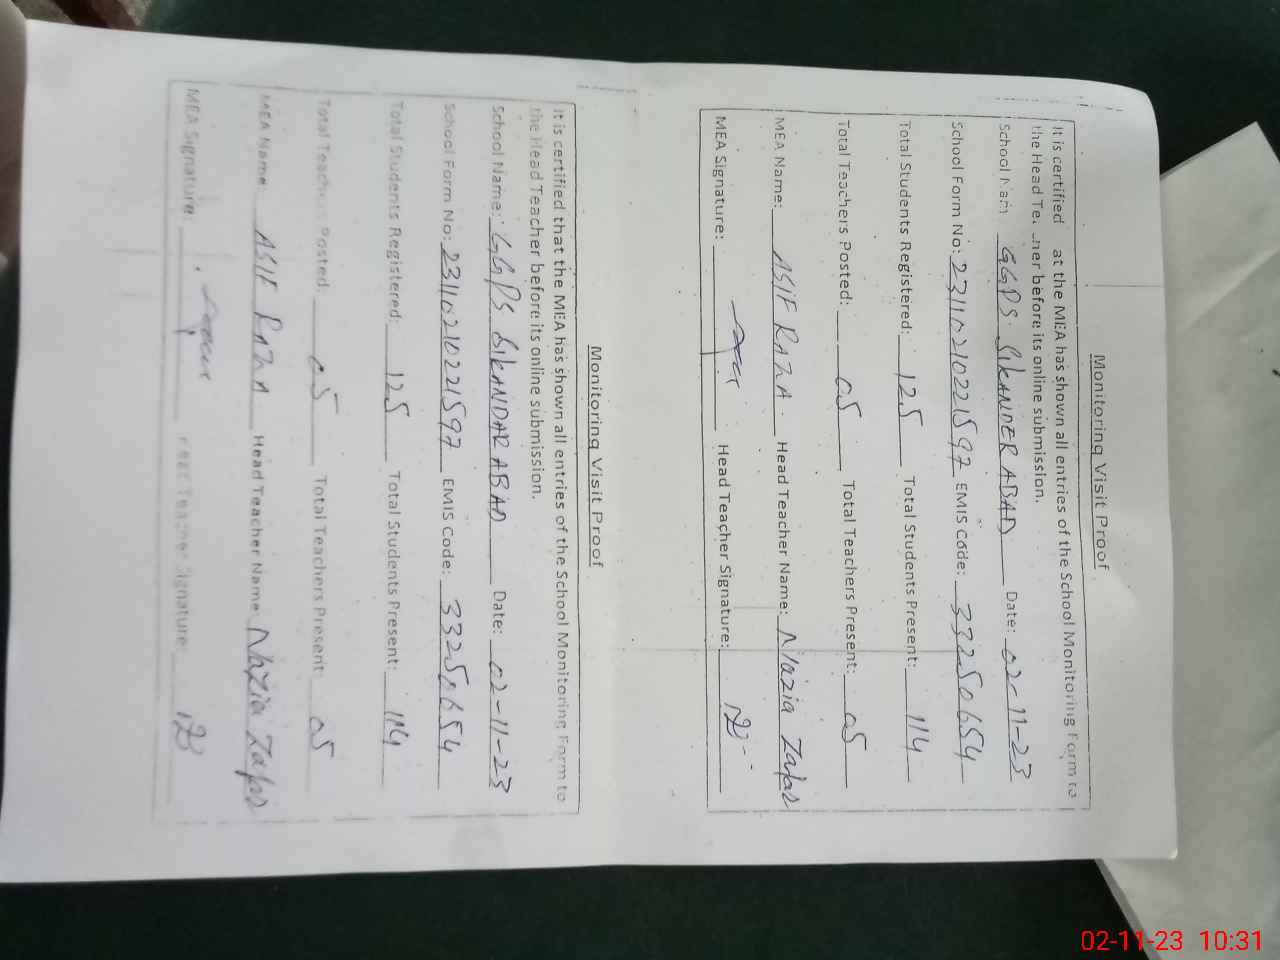 Monitoring Visit Proof
It is certified at the MEA has shown all entries of the School Monitoring Form to
the Head Te. ner before its online submission.
School Nam GGPS SIKANDER ABAD Date: 02-11-23
School Form No: 2311021022 1597 EMIS Code: 33250654
Total Students Registered: 125 Total Students Present: 114
Total Teachers Posted: 05 Total Teachers Present: 05
MEA Name: ASIF RAZA Head Teacher Name: Nazia Zafar
MEA Signature: Head Teacher Signature:
Monitoring Visit Proof
It is certified that the MEA has shown all entries of the School Monitoring Form to
the Head Teacher before its online submission.
School Name: GGPS SIKANDAR ABAD Date: 02-11-23
School Form No: 2311021022 1597 EMIS Code: 33250654
Total Students Registered: 125 Total Students Present: 114
Total Teachers Posted: 05 Total Teachers Present: 05
MEA Name ASIF RAZA Head Teacher Name: Nazia Zafar
MEA Signature: Head Teacher Signature:
02-11-23 10:31